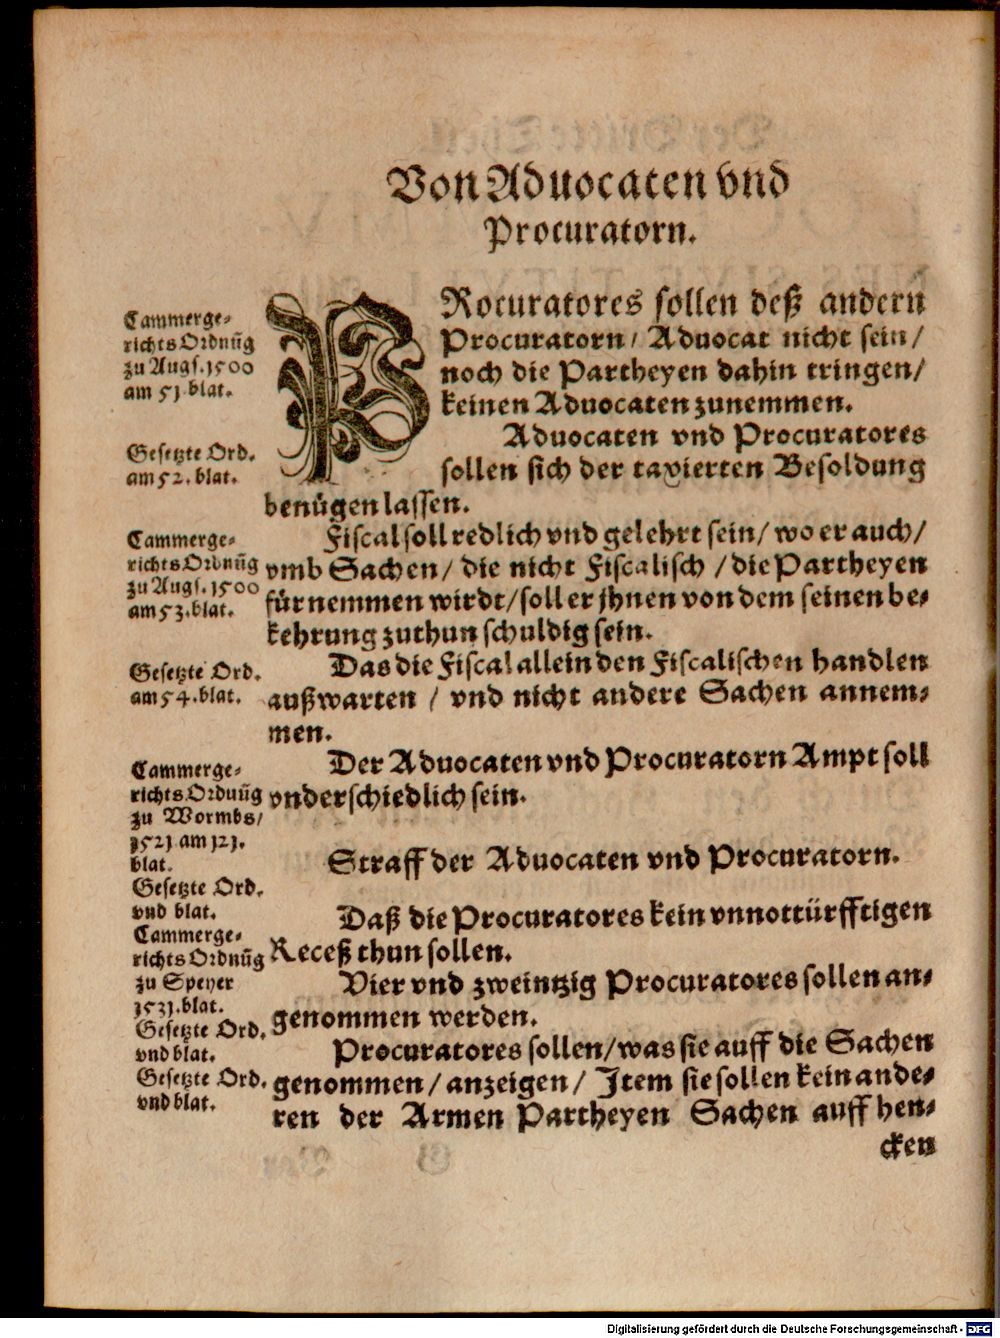 Von Aduocaten vnd
Procuratorn.
Cammerge-
richts Ordnūg
zu Augs. 1500
am 51 blat.
Gesetzte Ord.
am 52. blat.
Cammerge-
richts Ordnūg
zu Augs. 1500
am 53. blat.
Gesetzte Ord.
am 54. blat.
Cammerge-
richts Ordnūg
zu Wormbs/
1521 am 121.
blat.
Gesetzte Ord.
vnd blat.
Cammerge-
richts Ordnūg
zu Speyer
1531. blat.
Gesetzte Ord.
vnd blat.
Gesetzte Ord.
vnd blat.
PRocuratores sollen deß andern
Procuratorn / Aduocat nicht sein /
noch die Partheyen dahin tringen /
keinen Aduocaten zunemmen.
Aduocaten vnd Procuratores
sollen sich der taxierten Besoldung
benügen lassen.
Fiscal soll redlich vnd gelehrt sein / wo er auch /
vmb Sachen / die nicht Fiscalisch / die Partheyen
fürnemmen wirdt / soll er jhnen von dem seinen be-
kehrung zuthun schuldig sein.
Das die Fiscal allein den Fiscalischen handlen
außwarten / vnd nicht andere Sachen annem-
men.
Der Aduocaten vnd Procuratorn Ampt soll
vnderschiedlich sein.
Straff der Aduocaten vnd Procuratorn.
Daß die Procuratores kein vnnottürfftigen
Receß thun sollen.
Vier vnd zweintzig Procuratores sollen an-
genommen werden.
Procuratores sollen / was sie auff die Sachen
genommen / anzeigen / Item sie sollen kein ande-
ren der Armen Partheyen Sachen auff hen-
cken
Digitalisierung gefördert durch die Deutsche Forschungsgemeinschaft - DFG